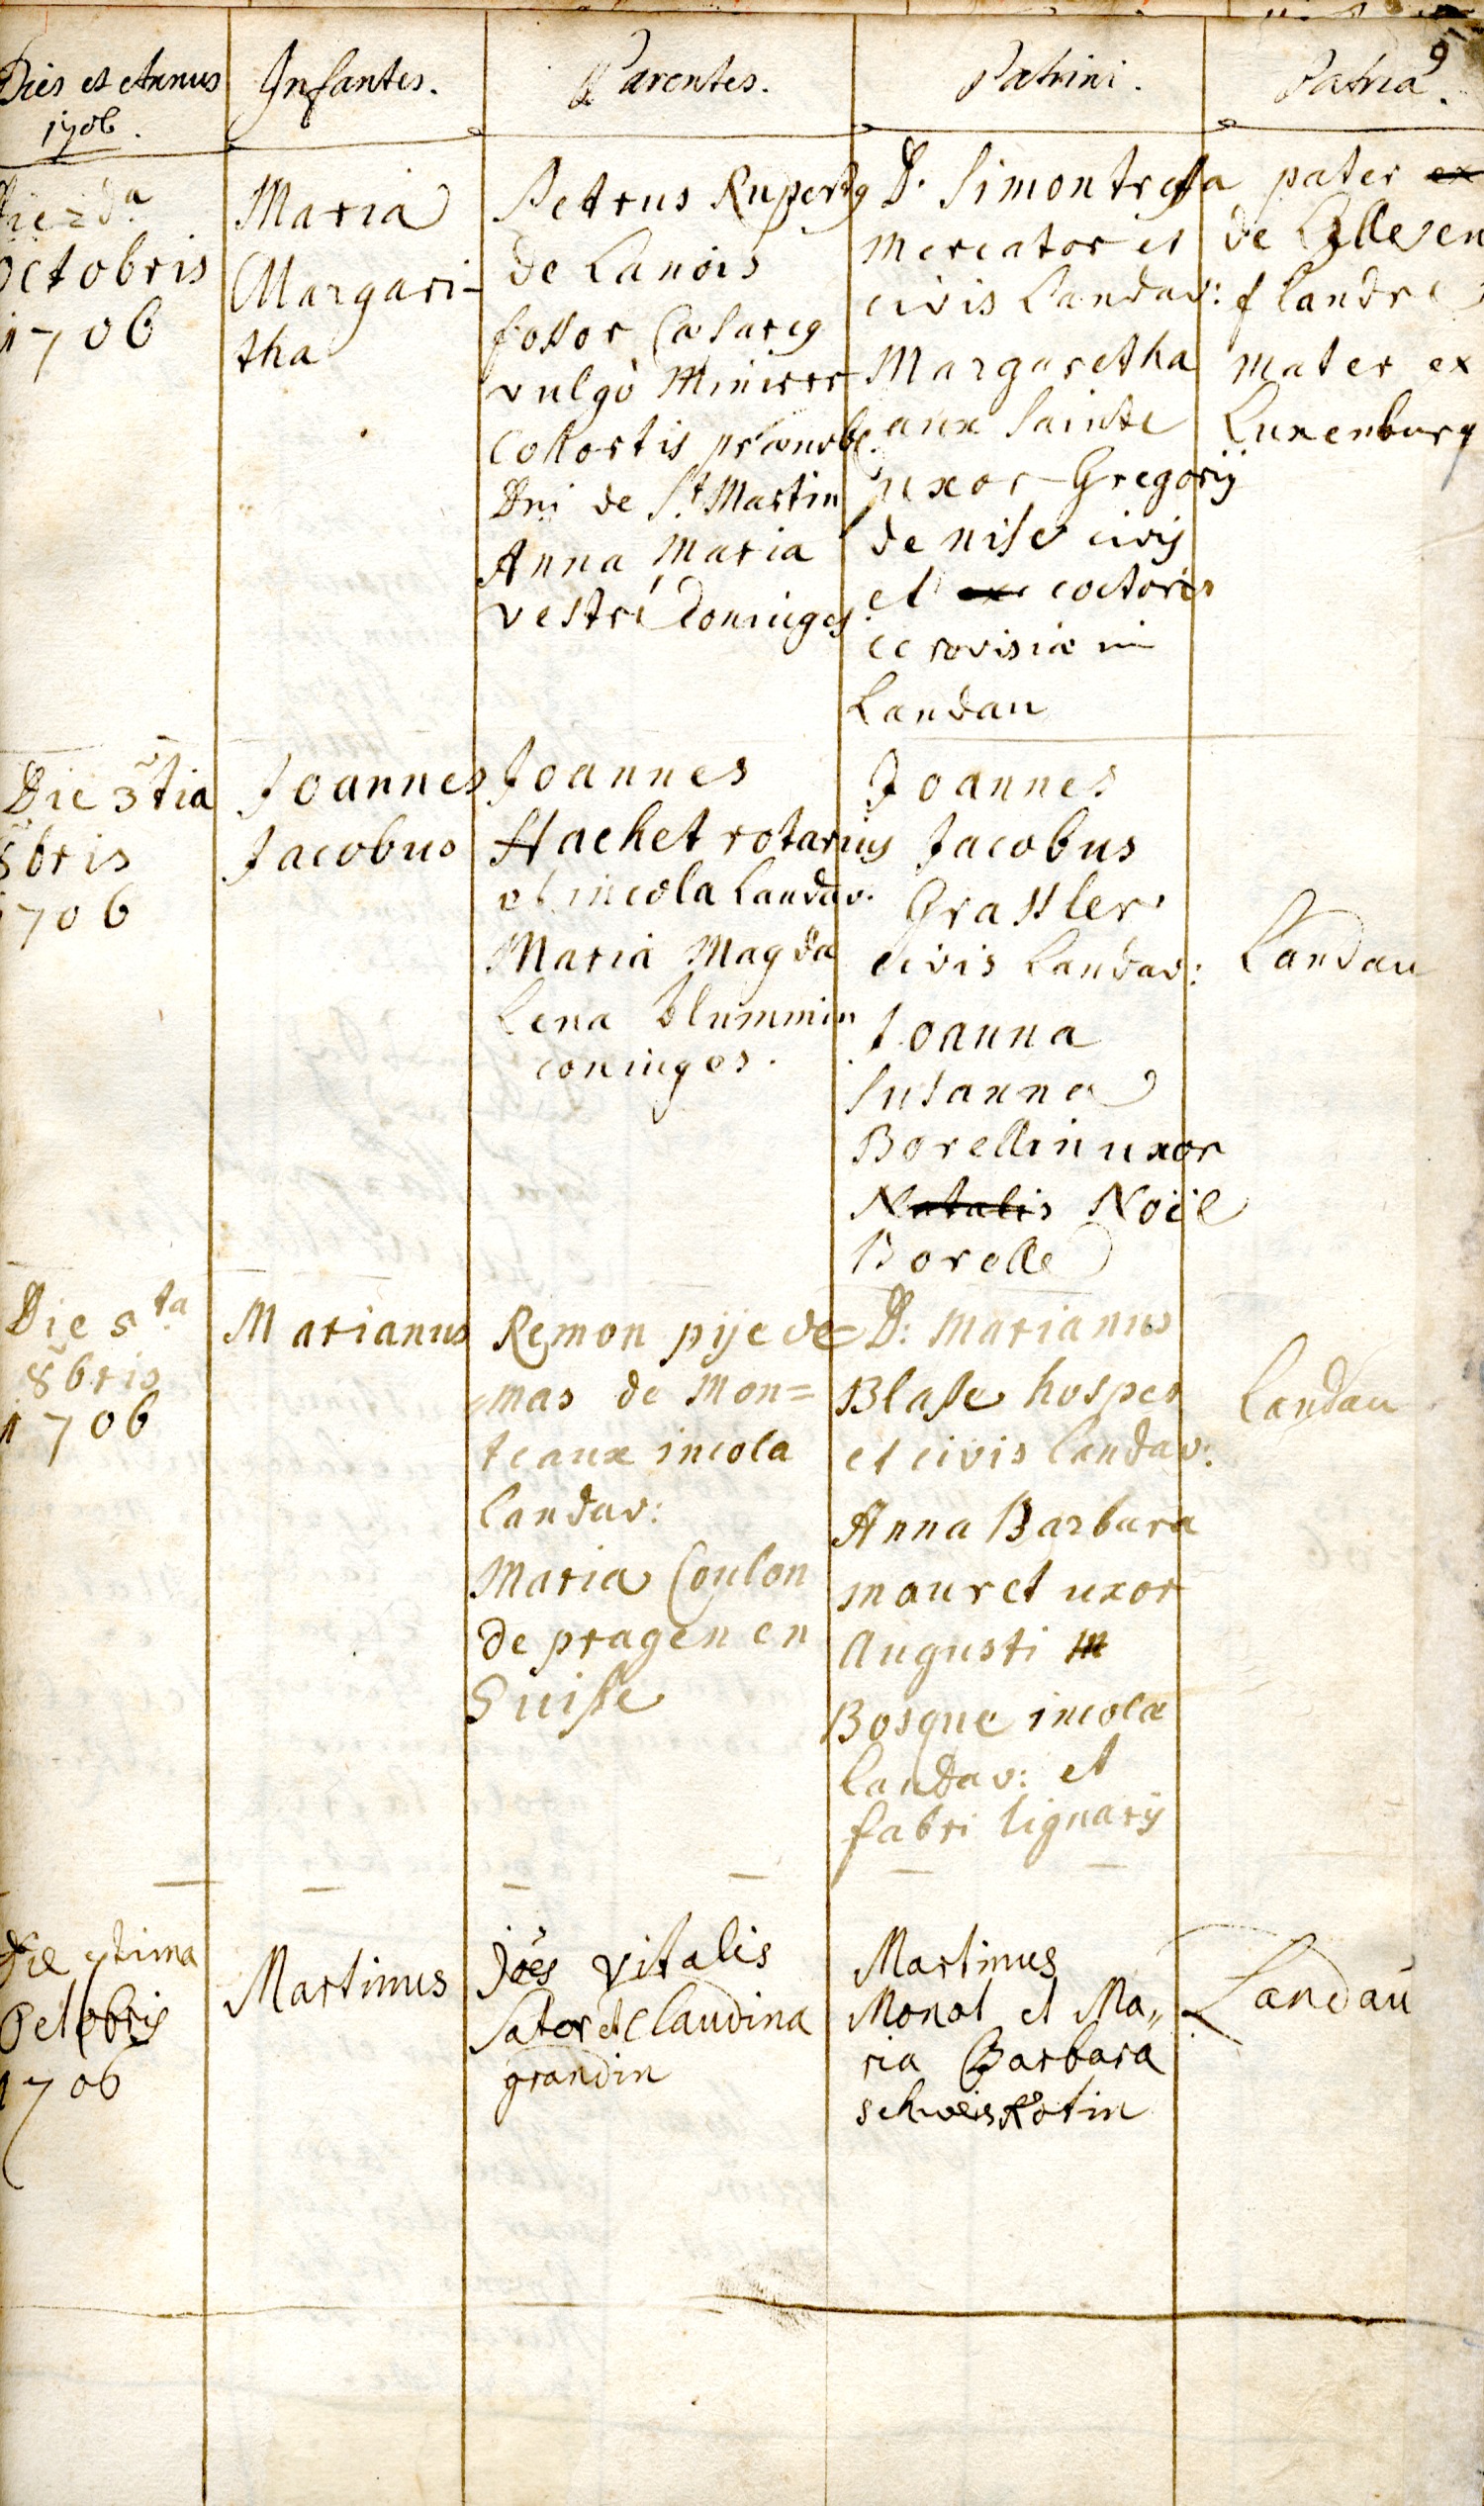 91
Dies et Annus
1706.
Infantes.
Parentes.
Patrini.
Patria.
Die 2da
octobris
1706
Maria
Margari-
tha
Petrus Ruperty
de Lanois
fossor Casareg
vulgò Minierr
Cohortis prænobl.
Dni de St Martin
Anna Maria
vestré Coniuges
D. Simon tressa
Mercator et
civis Landav:
Margaretha
aux Sainte
uxor Gregorij
de nise civis
et coctoris
cerovisiæ in
Landau
pater ex
de Lillesen
flandre
mater ex
Luxenburg
Die 3tia
8bris
1706
Joannes
Jacobus
Joannes
Hachet rotarius
et incola Landav.
Maria Magda
Lena blummin
coniuges.
Joannes
Jacobus
Grassler
civis Landav:
Joanna
Susanna
Borellin uxor
Natalis Noël
Borelle
Landau
Die 5ta
8bris
1706
Marianus
Remon pije de=
mas de Mon=
teaux incola
Landav:
Maria Coulon
de pragen en
Suisse
D: Marianus
Blase hospes
et civis Landav:
Anna Barbara
mauret uxor
Augusti
Bosque incolæ
Landav: et
fabri lignarij
Landau
Die 7tima
Octobris
1706
Martinus
Joës Vitalis
Sator et Claudina
grandin
Martinus
Monot et Ma„
ria Barbara
schweiskotin
Landau